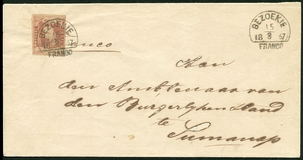 BEZOEKIE
FRANCO
BEZOEKIE
15
18 8 67
FRANCO
franco
Aan
den Ambtenaar van
den Burgerlyken Stand
te
Sumanap